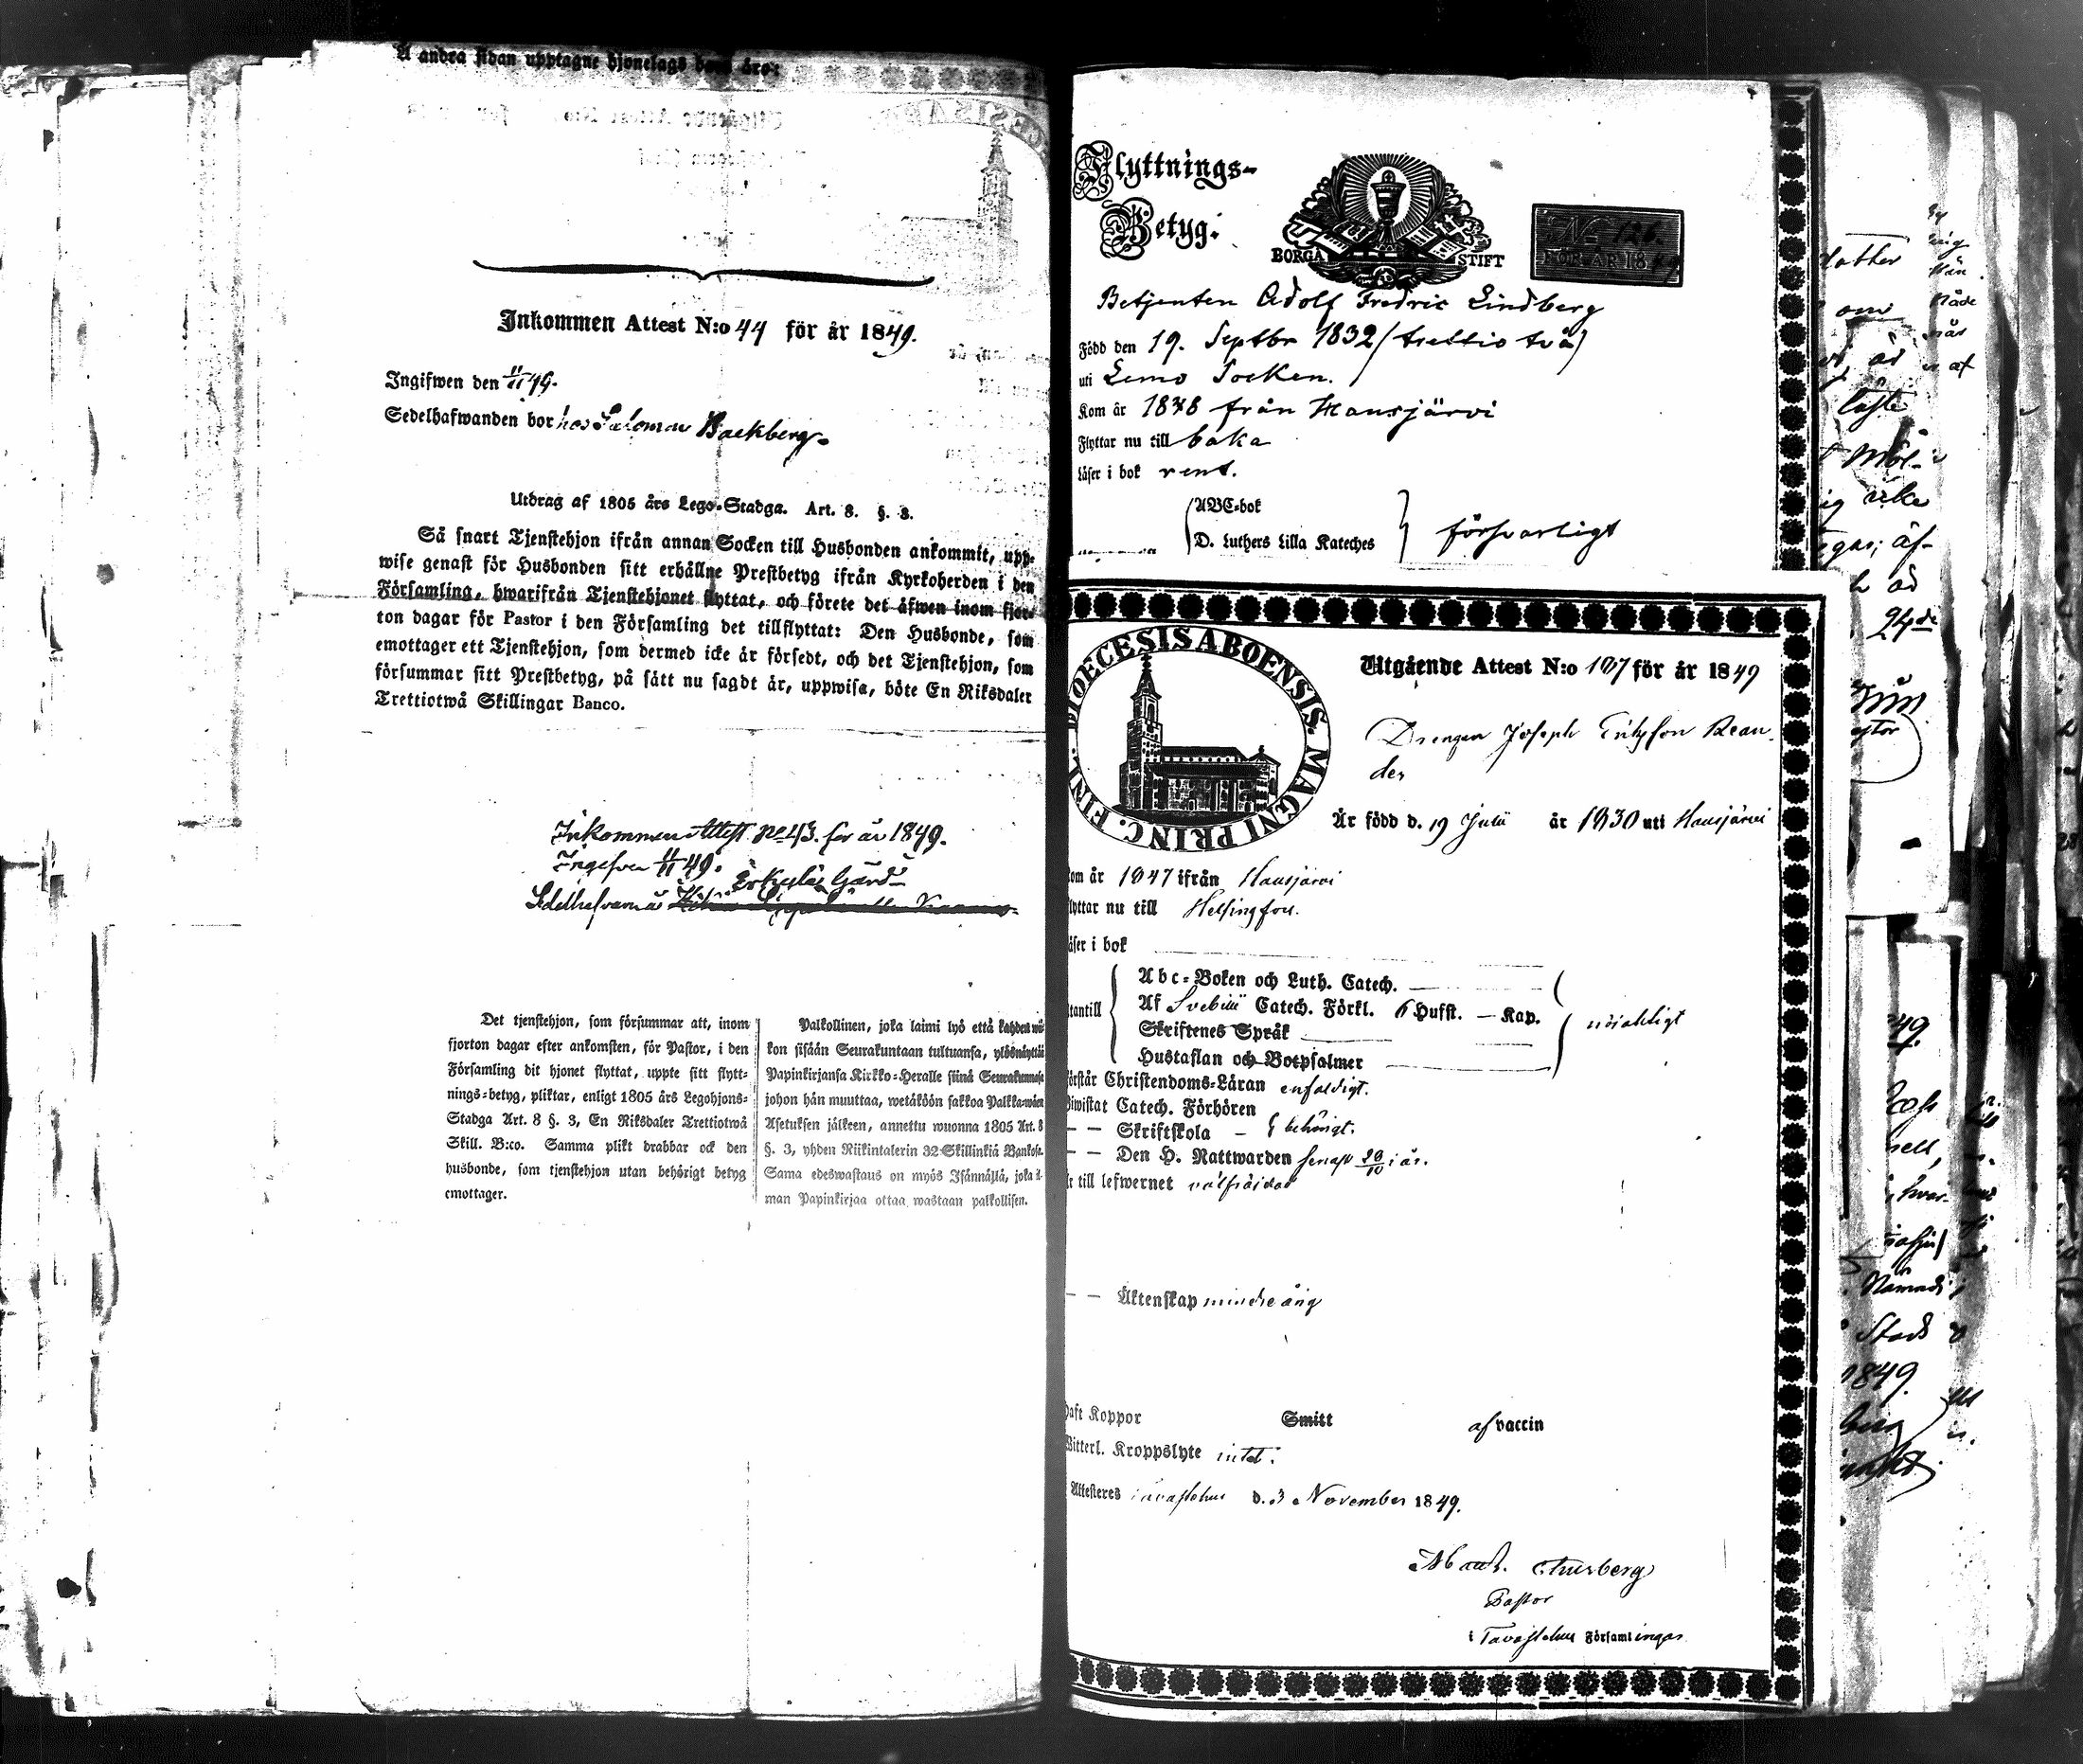 Å andra sidan upptagne hjonelags barn äro:
Inkommen Attest N:o 44 för år 1849.
Ingifwen den 4/11 49.
Sedelhafwanden bor hos Salomon Backberg.
Utdrag af 1805 års Lego-Stadga. Art. 8. §. 3.
Så snart Tjenstehjon ifrån annan Socken till Husbonden ankommit, upp-
wise genast för Husbonden sitt erhållne Prestbetyg ifrån Kyrkoherden i den
Församling, hwarifrån Tjenstehjonet flyttat, och förete det äfwen inom fjor-
ton dagar för Pastor i den Församling det tillflyttat: Den Husbonde, som
emottager ett Tjenstehjon, som dermed icke är försedt, och det Tjenstehjon, som
försummar sitt Prestbetyg, på sätt nu sagdt är, uppwisa, böte En Riksdaler
Trettiotwå Skillingar Banco.
Inkommen Attest No 43. för år 1849.
Ingifven 4/11 49.
Erkylas Gård
Det tjenstehjon, som försummar att, inom
fjorton dagar efter ankomsten, för Pastor, i den
Församling dit hjonet flyttat, uppte sitt flytt-
nings-betyg, pliktar, enligt 1805 års Legohjons-
Stadga Art. 8 §. 3, En Riksdaler Trettiotwå
Skill. B:co. Samma plikt drabbar ock den
husbonde, som tjenstehjon utan behörigt betyg
emottager.
Palkollinen, joka laimi lyö että kahden wii-
kon sisään Seurakuntaan tultuansa, ylösnäyttää
Papinkirjansa Kirkko-Heralle siinä Seurakunnasa
johon hän muuttaa, wetäköön sakkoa Palkka-wäen
Asetuksen jälkeen, annettu wuonna 1805 Art. 8
§. 3, yhden Riikintalerin 32 Skillinkiä Bankosa.
Sama edeswastaus on myös Isännällä, joka il-
man Papinkirjaa ottaa wastaan palkollisen.
Flyttnings-
Betyg:
BORGÅ STIFT
No 126.
FÖR ÅR 1849
Betjenten Adolf Fredric Lindberg
Född den 19. Septbr 1832 (trettio två)
uti Lemo Socken.
Kom år 1848 från Hausjärvi
Flyttar nu till baka
Läser i bok rent.
ABC-bok
D. Luthers Lilla Kateches
försvarligt
DIOECESIS ABOENSIS. MAGNI PRINC. FINL.
Utgående Attest N:o 107 för år 1849
Drengen Joseph Eriksson Rean-
der
Är född d. 19 Julii år 1830 uti Hausjärvi
Kom år 1847 ifrån Hausjärvi
Flyttar nu till Helsingfors.
Läser i bok
Utantill
Abc-Boken och Luth. Catech.
Af Svebilii Catech. Förkl. 6 Hufst. — Kap.
Skriftenes Språk
Hustaflan och Botpsalmer
nöjaktigt
Förstår Christendoms-Läran enfaldigt.
Biwistat Catech. Förhören
— — Skriftskola — behörigt.
— — Den H. Nattwarden senast 28/10 i år.
Är till lefwernet välfräjdad
— — Äktenskap minderårig
Haft Koppor Smitt af vaccin
Witterl. Kroppslyte intet.
Attesteres Tavastehus d. 3 November 1849.
Pastor
i Tavastehus Församlingar